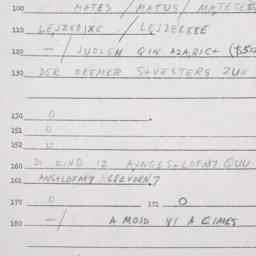 100 MATES / MATUS /
110 LEJZERIXE / LEJZER88E
120 — / JUDLEN QIN AZA,RIC+
130 DER OREMER S+VESTERS ZUN
150 0
151 0
152 0
160 DI KIND IZ AJNGES+LOFM7 QUU
161 ANS+LOFM7
170 0 171 0
180 — / A MOJD VI A CIMES